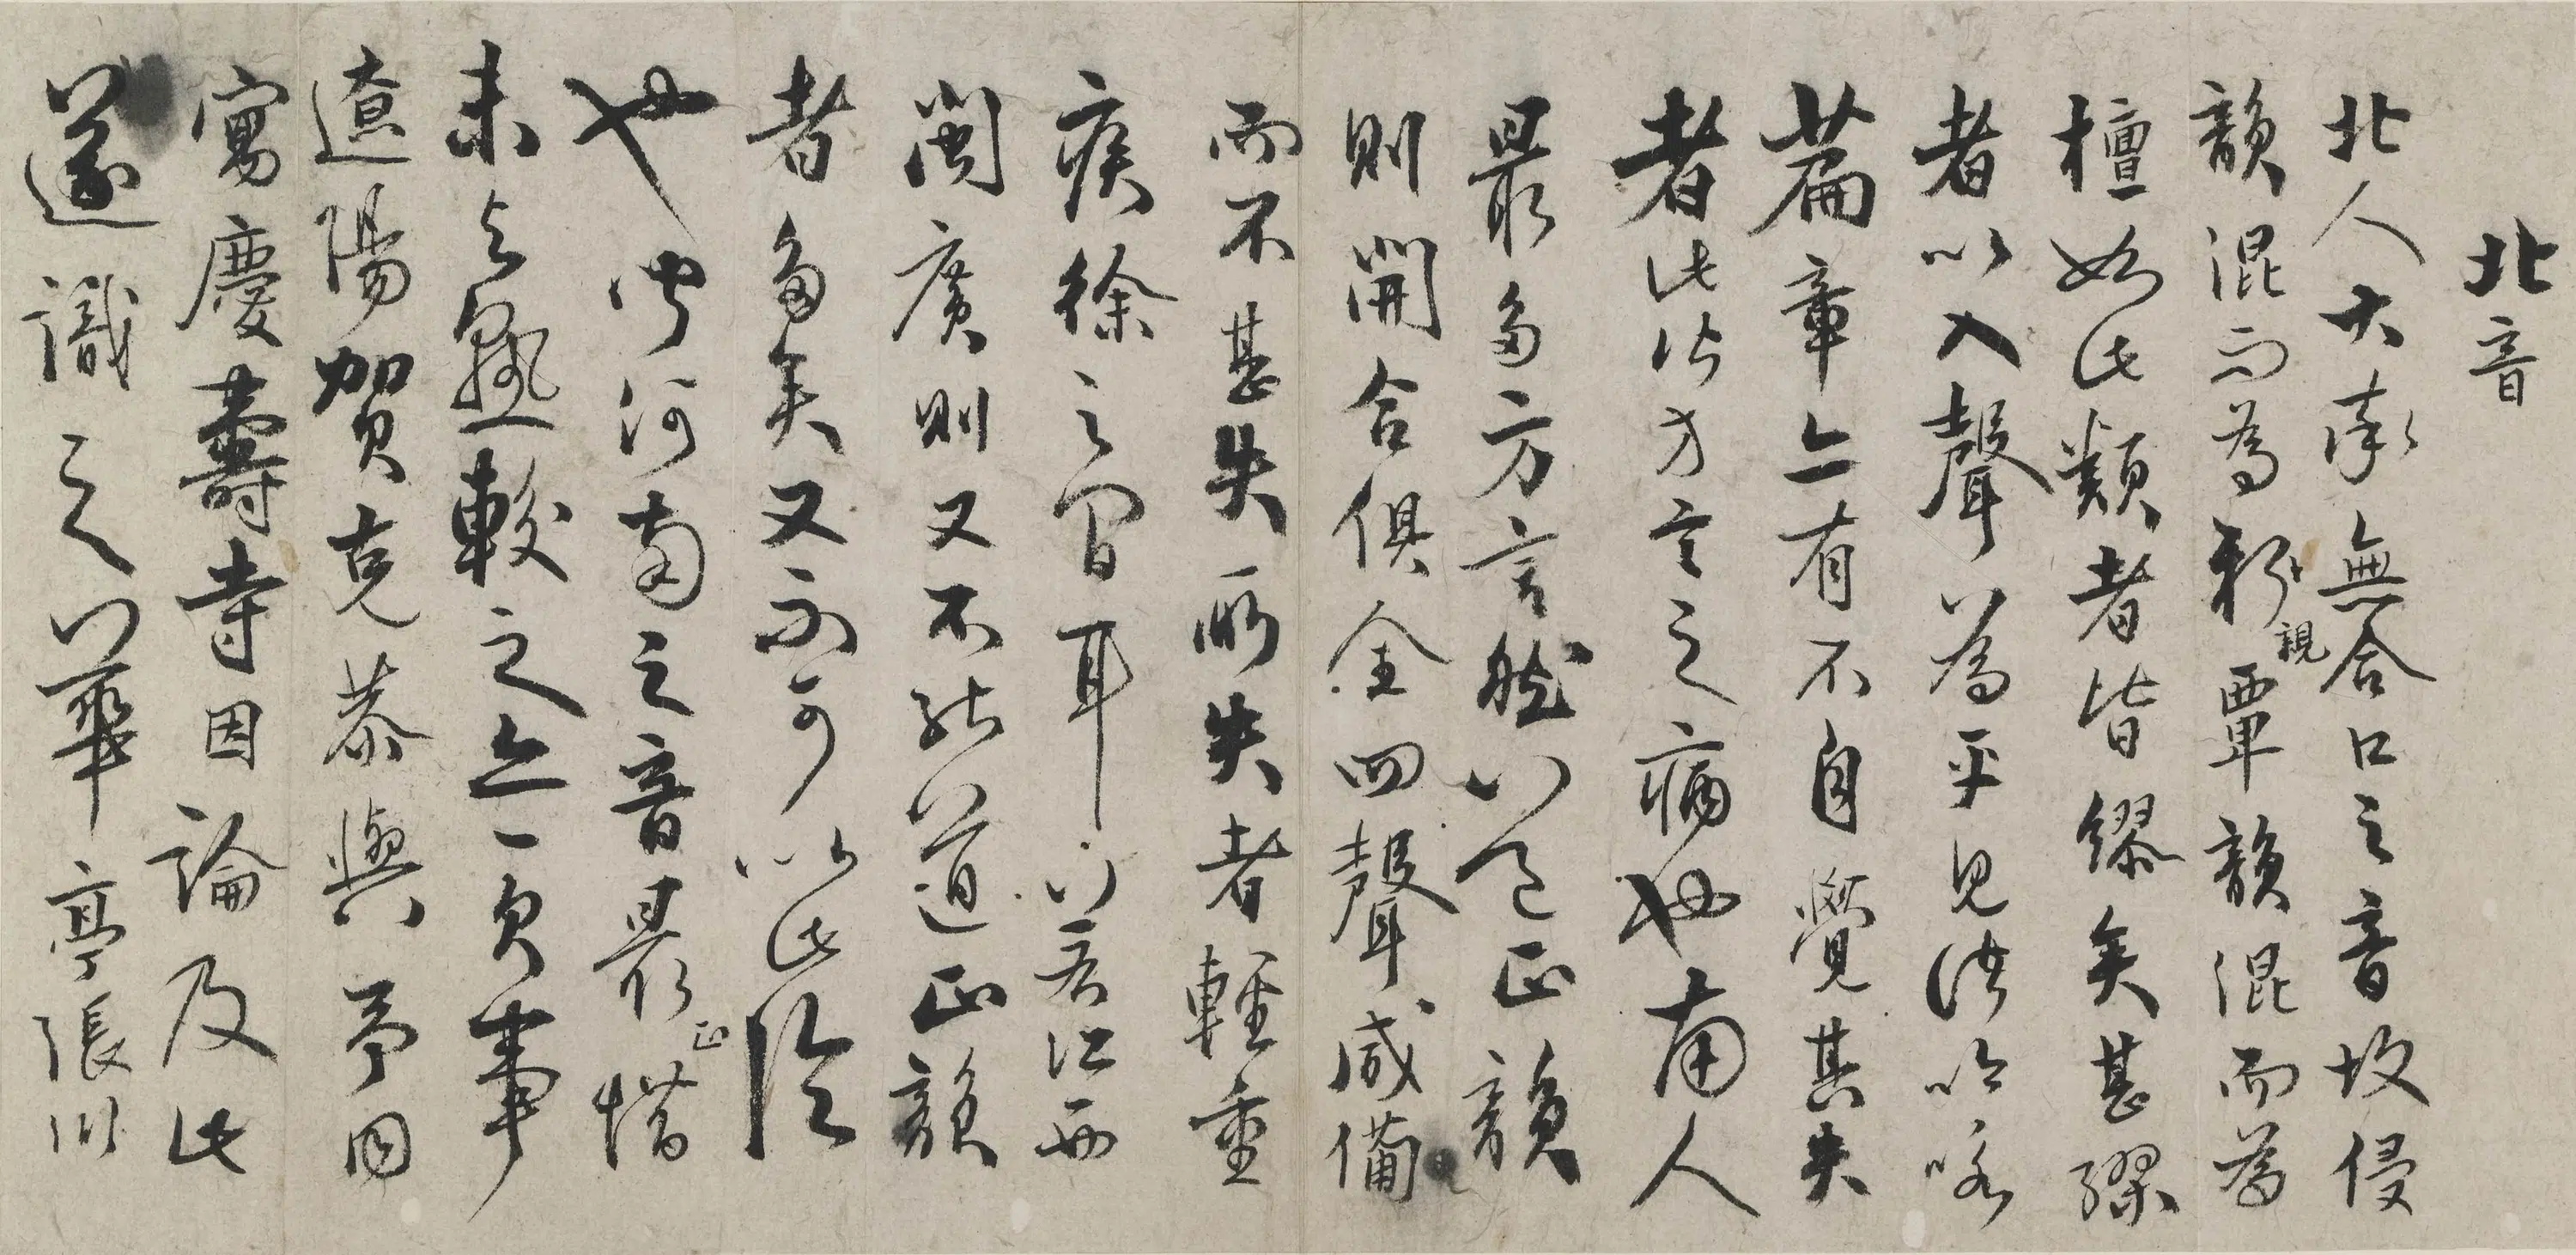 北音
北人大率無合口之音故侵
韻混而為親覃韻混而為
檀如此類者皆繆矣甚繆
者以入聲為平見諸吟咏
篇章亦有不自覺其失
者此皆方言之病也南人
最多方言然以正韻
則開合俱全四聲咸備
而不甚失所失者輕重
疾徐之間耳若江西
閩廣則又不能道正韻
者多矣又不可以此論
也中河南之音最正惜
未與熟較之亦一欠事
遼陽賀克恭與予同
寓慶壽寺因論及此
遂識之華亭張川